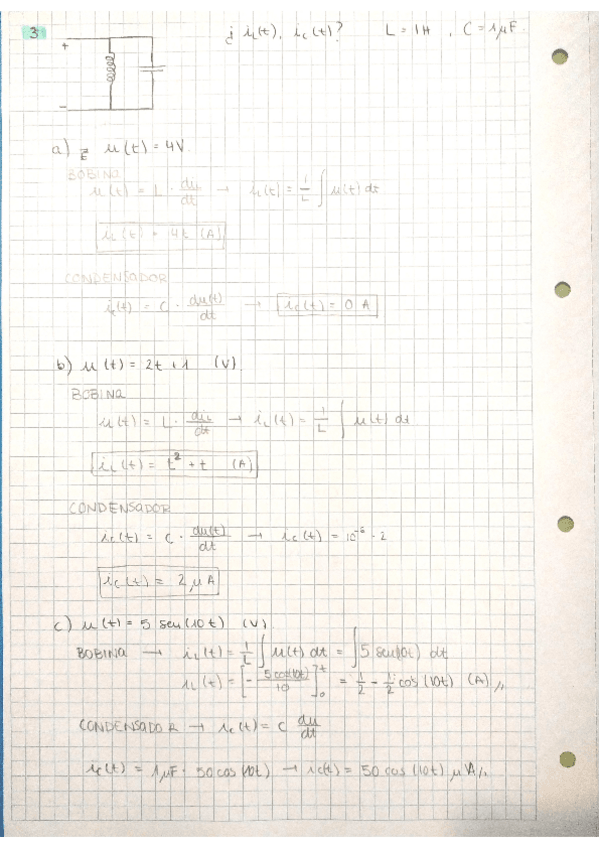 3 ¿ iL(t), ic(t)? L = 1H , C = 1µF.
+
-
a) u(t) = 4V.
BOBINA
u(t) = L · du/dt → iL(t) = 1/L ∫ u(t) dt
iL(t) = 4t (A)
CONDENSADOR
ic(t) = C · du(t)/dt → ic(t) = 0 A
b) u(t) = 2t + 1 (V)
BOBINA
u(t) = L · diL/dt → iL(t) = 1/L ∫ u(t) dt
iL(t) = t² + t (A)
CONDENSADOR
ic(t) = C · du(t)/dt → ic(t) = 10⁻⁶ · 2
ic(t) = 2 µA
c) u(t) = 5 sen(10t) (V)
BOBINA → iL(t) = 1/L ∫ u(t) dt = ∫ 5 sen(10t) dt
iL(t) = [- 5cos(10t)/10]₀ᵗ = 1/2 - 1/2 cos(10t) (A)
CONDENSADOR → ic(t) = C du/dt
ic(t) = 1µF · 50 cos(10t) → ic(t) = 50 cos(10t) µA